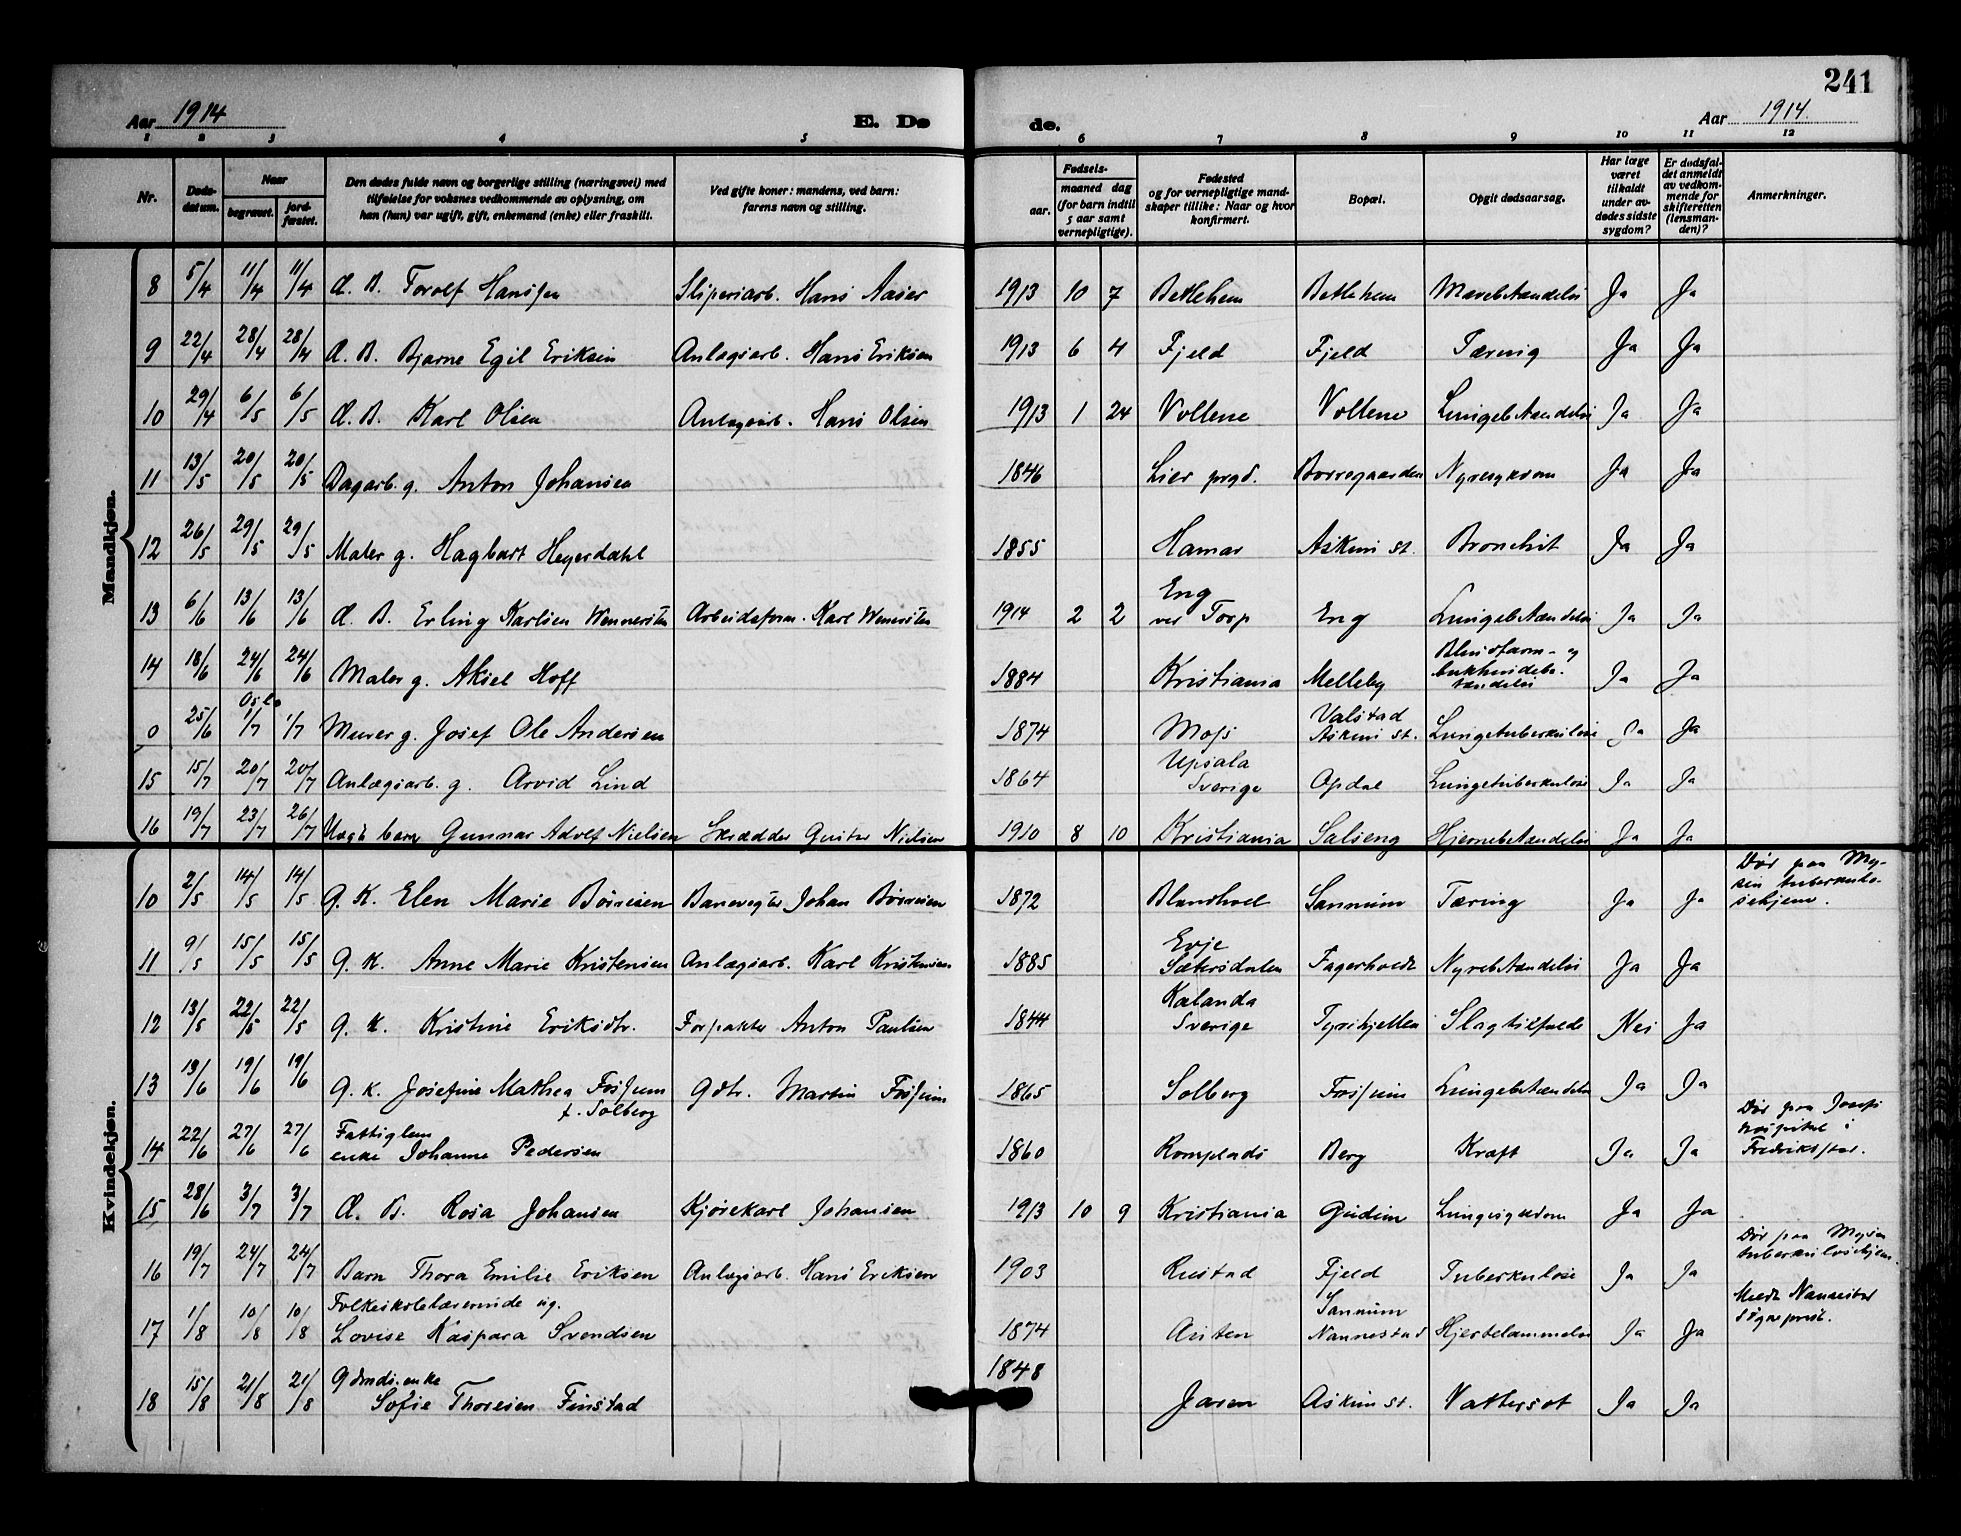 241
Aar 1914 E. Dø de. Aar 1914.
1 2 3 4 5 6 7 8 9 10 11 12
Nr. Døds-datum. Naar begravet. jord-fæstet. Den dødes fulde navn og borgerlige stilling (næringsvei) med tilføielse for voksnes vedkommende av oplysning, om han (hun) var ugift, gift, enkemand (enke) eller fraskilt. Ved gifte koner: mandens, ved barn: farens navn og stilling. Fødsels- aar. maaned dag (for barn indtil 5 aar samt vernepligtige). Fødested og for vernepligtige mand-skaper tillike: Naar og hvor konfirmert. Bopæl. Opgit dødsaarsag. Har læge været tilkaldt under av-dødes sidste sygdom? Er dødsfal-det anmeldt av vedkom-mende for skifteretten (lensman-den)? Anmerkninger.
Mandkjøn.
8 5/4 11/4 11/4 d. B. Torolf Hansen Sliperiarb. Hans Aaser 1913 10 7 Betlehem Betlehem Mavebetændelse Ja Ja
9 22/4 28/4 28/4 d. B. Bjarne Egil Eriksen Anlægsarb. Hans Eriksen 1913 6 4 Fjeld Fjeld Tæring Ja Ja
10 29/4 6/5 6/5 d. B. Karl Olsen Anlægsarb. Hans Olsen 1913 1 24 Voltene Voltene Lungebetændelse Ja Ja
11 13/5 20/5 20/5 Dagarb. g. Anton Johansen 1846 Lier prgd. Borregaarden Nyresykdom Ja Ja
12 26/5 29/5 29/5 Maler g. Hagbart Heyerdahl 1855 Hamar Askim st. Bronchit Ja Ja
13 6/6 13/6 13/6 d. B. Erling Karlsen Wennersten Arbeidsform. Karl Wennersten 1914 2 2 Eng ved Torp Eng Lungebetændelse Ja Ja
14 18/6 24/6 24/6 Maler g. Aksel Hoff 1884 Kristiania Melleby Blindtarm- og bukhindebe-tændelse Ja Ja
0 25/6 Oslo 1/7 1/7 Murer g. Josef Ole Andersen 1874 Moss Valstad Askim st. Lungetuberkulose Ja Ja
15 15/7 20/7 20/7 Anlægsarb. g. Arvid Lind 1864 Upsala Sverige Opdal Lungetuberkulose Ja Ja
16 19/7 23/7 26/7 Uægt barn Gunnar Adolf Nielsen Skrædder Gustav Nielsen 1910 8 10 Kristiania Salseng Hjernebetændelse Ja Ja
Kvindekjøn.
10 2/5 14/5 14/5 G. K. Elen Marie Børresen Banevogter Johan Børresen 1872 Sannum Tæring Ja Ja Død paa My-sen tuberkulo-sehjem.
11 9/5 15/5 15/5 G. K. Anne Marie Kristensen Anlægsarb. Karl Kristensen 1885 Evje Sætersdalen Fagerholdt Nyrebetændelse Ja Ja
12 13/5 22/5 22/5 G. K. Kristine Eriksdtr. Forpakter Anton Paulsen 1844 Kalanda Sverige Slagtilfælde Nei Ja
13 13/6 19/6 19/6 G. K. Josefine Mathea Fossum f. Solberg Gdbr. Martin Fossum 1865 Solberg Fossum Lungebetændelse Ja Ja
14 22/6 27/6 27/6 Fattiglem enke Johanne Pedersen 1860 Romplads Berg Kræft Ja Ja Død paa Josefs hospital i Fredrikstad.
15 28/6 3/7 3/7 d. B. Rosa Johansen Kjørekarl Johansen 1913 10 9 Kristiania Gudim Lungesykdom Ja Ja
16 19/7 24/7 24/7 Barn Thora Emilie Eriksen Anlægsarb. Hans Eriksen 1903 Rustad Fjeld Tuberkulose Ja Ja Død paa Mysen tuberkulosehjem.
17 1/8 10/8 10/8 Folkeskolelærerinde ug. Lovise Kaspara Svendsen 1874 Sannum Nannestad Hjertelammelse Ja Ja Meldt Nannestad sogneprest.
18 15/8 21/8 21/8 Gdmds. enke Sofie Thoresen Finstad 1848 Jaren Askim st. Vattersot Ja Ja